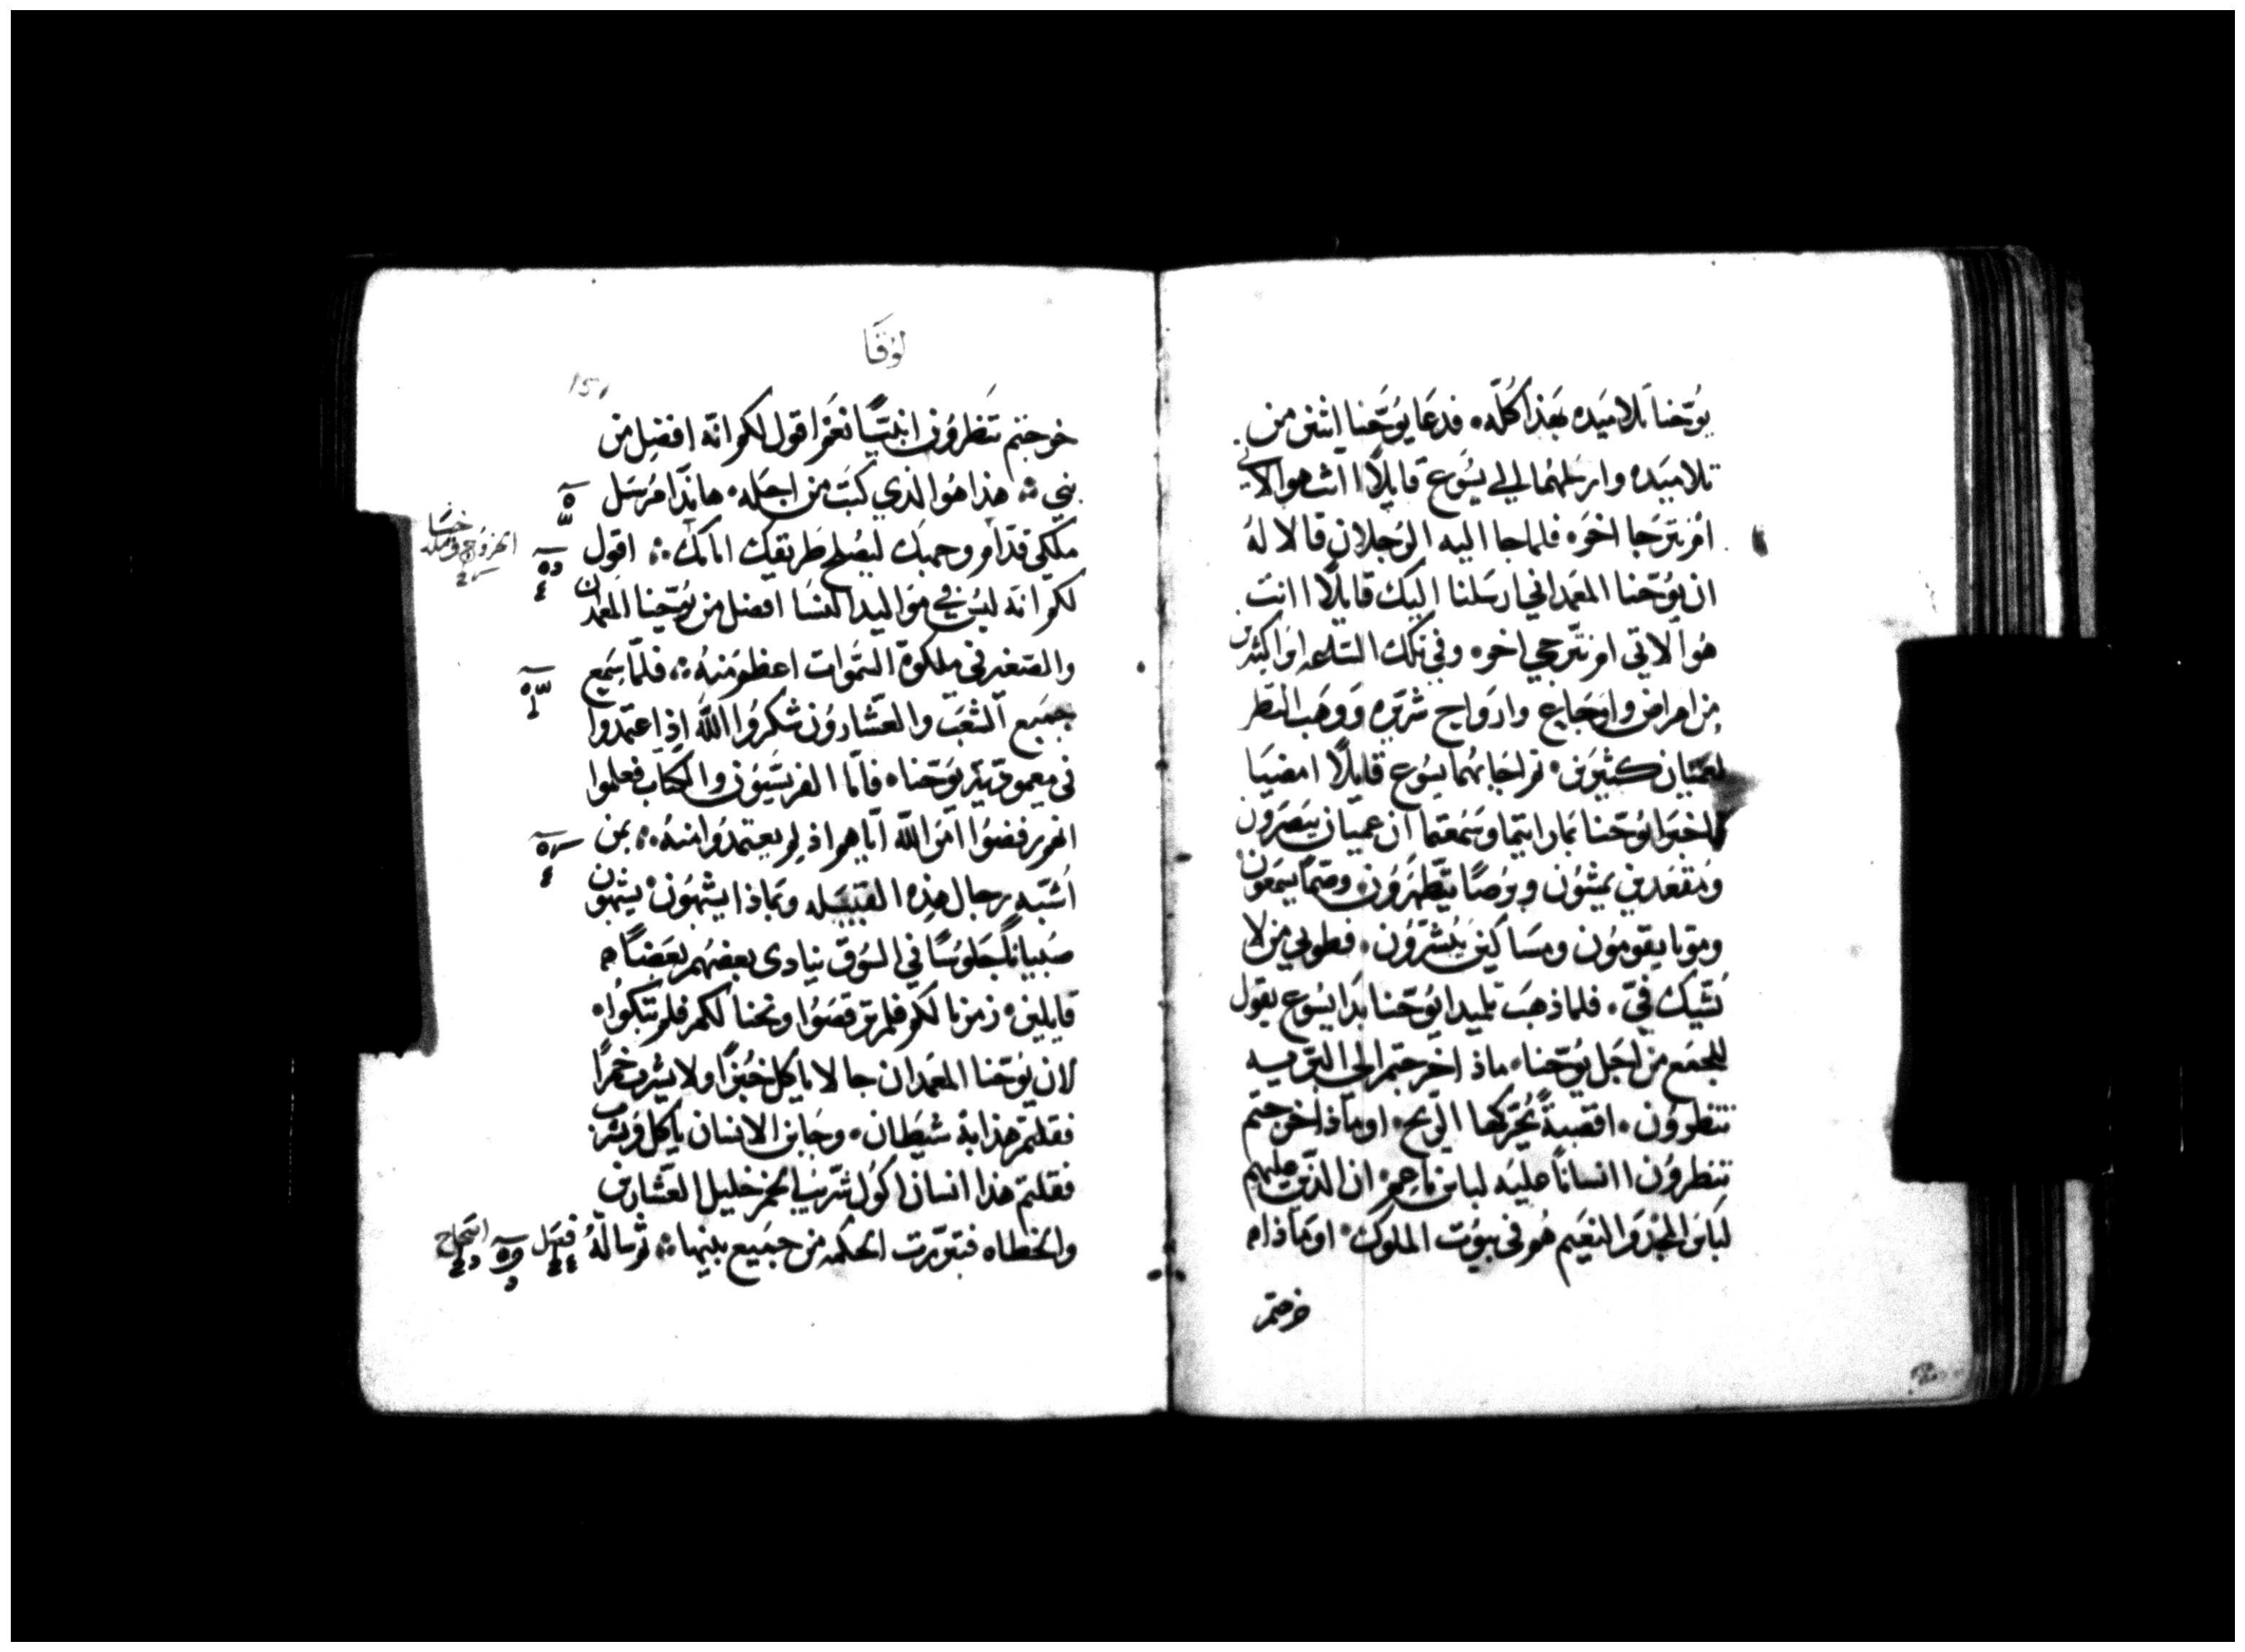 يوحنا تلاميده بهذا كله ۰ فدعا يوحنا اثنن من
تلاميده وارسلهما الي يسوع قايلاً اانت هو الاتي
ام نترجا اخر ۰ فلما جا اليه الرجلان قالا له
ان يوحنا المعمداني ارسلنا اليك قايلاً اانت
هو الاتي ام نترجي اخر ۰ وفي تلك الساعه ابرا كثيرين
من امراض واوجاع وارواح شريره ووهب النظر
لعميان كثيرين ۰ ثم اجابهما يسوع قايلاً امضيا
اخبرا يوحنا بما رايتما وسمعتما ان عميان يبصرون
ومقعدين يمشون وبرصًا يتطهرون وصمًا يسمعون
وموتا يقومون ومساكين يبشرون ۰ فطوبي من لا
يشك فيّ ۰ فلما ذهب تلميدا يوحنا بدا يسوع يقول
للجمع من اجل يوحنا ۰ ماذا خرجتم الي البريه
تنظرون ۰ اقصبةً يحركها الريح ۰ او ماذا خرجتم
تنظرون اانسانًا عليه لباس ناعم ۰ ان الذين عليهم
لباس المجد والنعيم هو في بيوت الملوك ۰ او ماذا
خرجتم
لوقا
151
خرجتم تنظرون انبيًا نعم اقول لكم انه افضل من
نبي ۰ هذا هو الذي كتب من اجله ۰ هانذا مرسل
ملكي قدام وجهك ليصلح طريقك امامك ۰ اقول
لكم انه ليس في مواليد النسا افضل من يوحنا المعمدان
والصغير في ملكوة السموات اعظم منه ۰ فلما سمع
جميع الشعب والعشارون شكروا الله اذ اعتمدوا
في معمودية يوحنا ۰ فاما الفريسيون والكتاب فعلموا
انهم رفضوا امر الله اياهم اذ لم يعتمدوا منه ۰ بمن
اشبه رجال هذه القبيله وبماذا يشبهون ۰ يشبهون
صبيانًا جلوسًا في السوق ينادى بعضهم بعضًا
قايلين ۰ زمرنا لكم فلم ترقصوا ونحنا لكم فلم تبكوا
لان يوحنا المعمدان جا لا ياكل خبزًا ولا يشرب خمرًا
فقلتم هذا به شيطان ۰ وجا بن الانسان ياكل ويشرب
فقلتم هذا انسان اكول شريب الخمر خليل العشارين
والخطاه فتبررت الحكمه من جميع بنيها ۰ ثم ساله
فصل
اصحاح